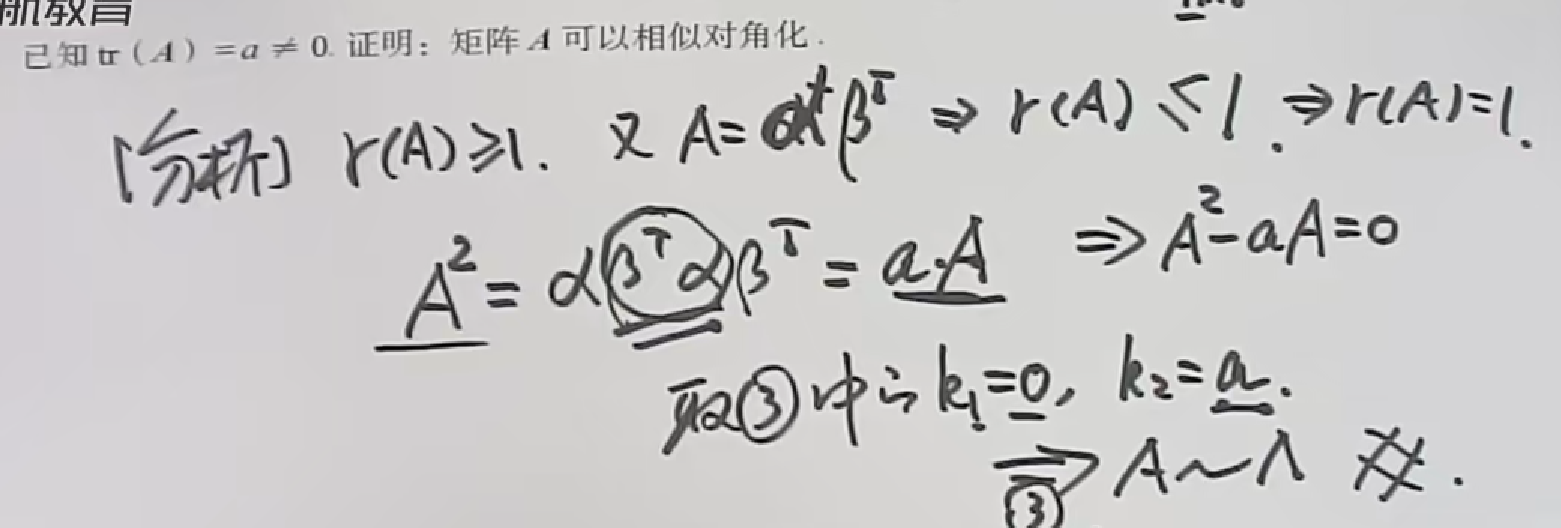 航教育
已知 tr (A) = a ≠ 0. 证明：矩阵 A 可以相似对角化.
[分析] r(A)≥1. 又 A=αβᵀ ⇒ r(A)≤1. ⇒r(A)=1.
A²=αβᵀαβᵀ=a·A ⇒A²-aA=0
取③中的 k₁=0, k₂=a.
⇒ A~Λ #.
③